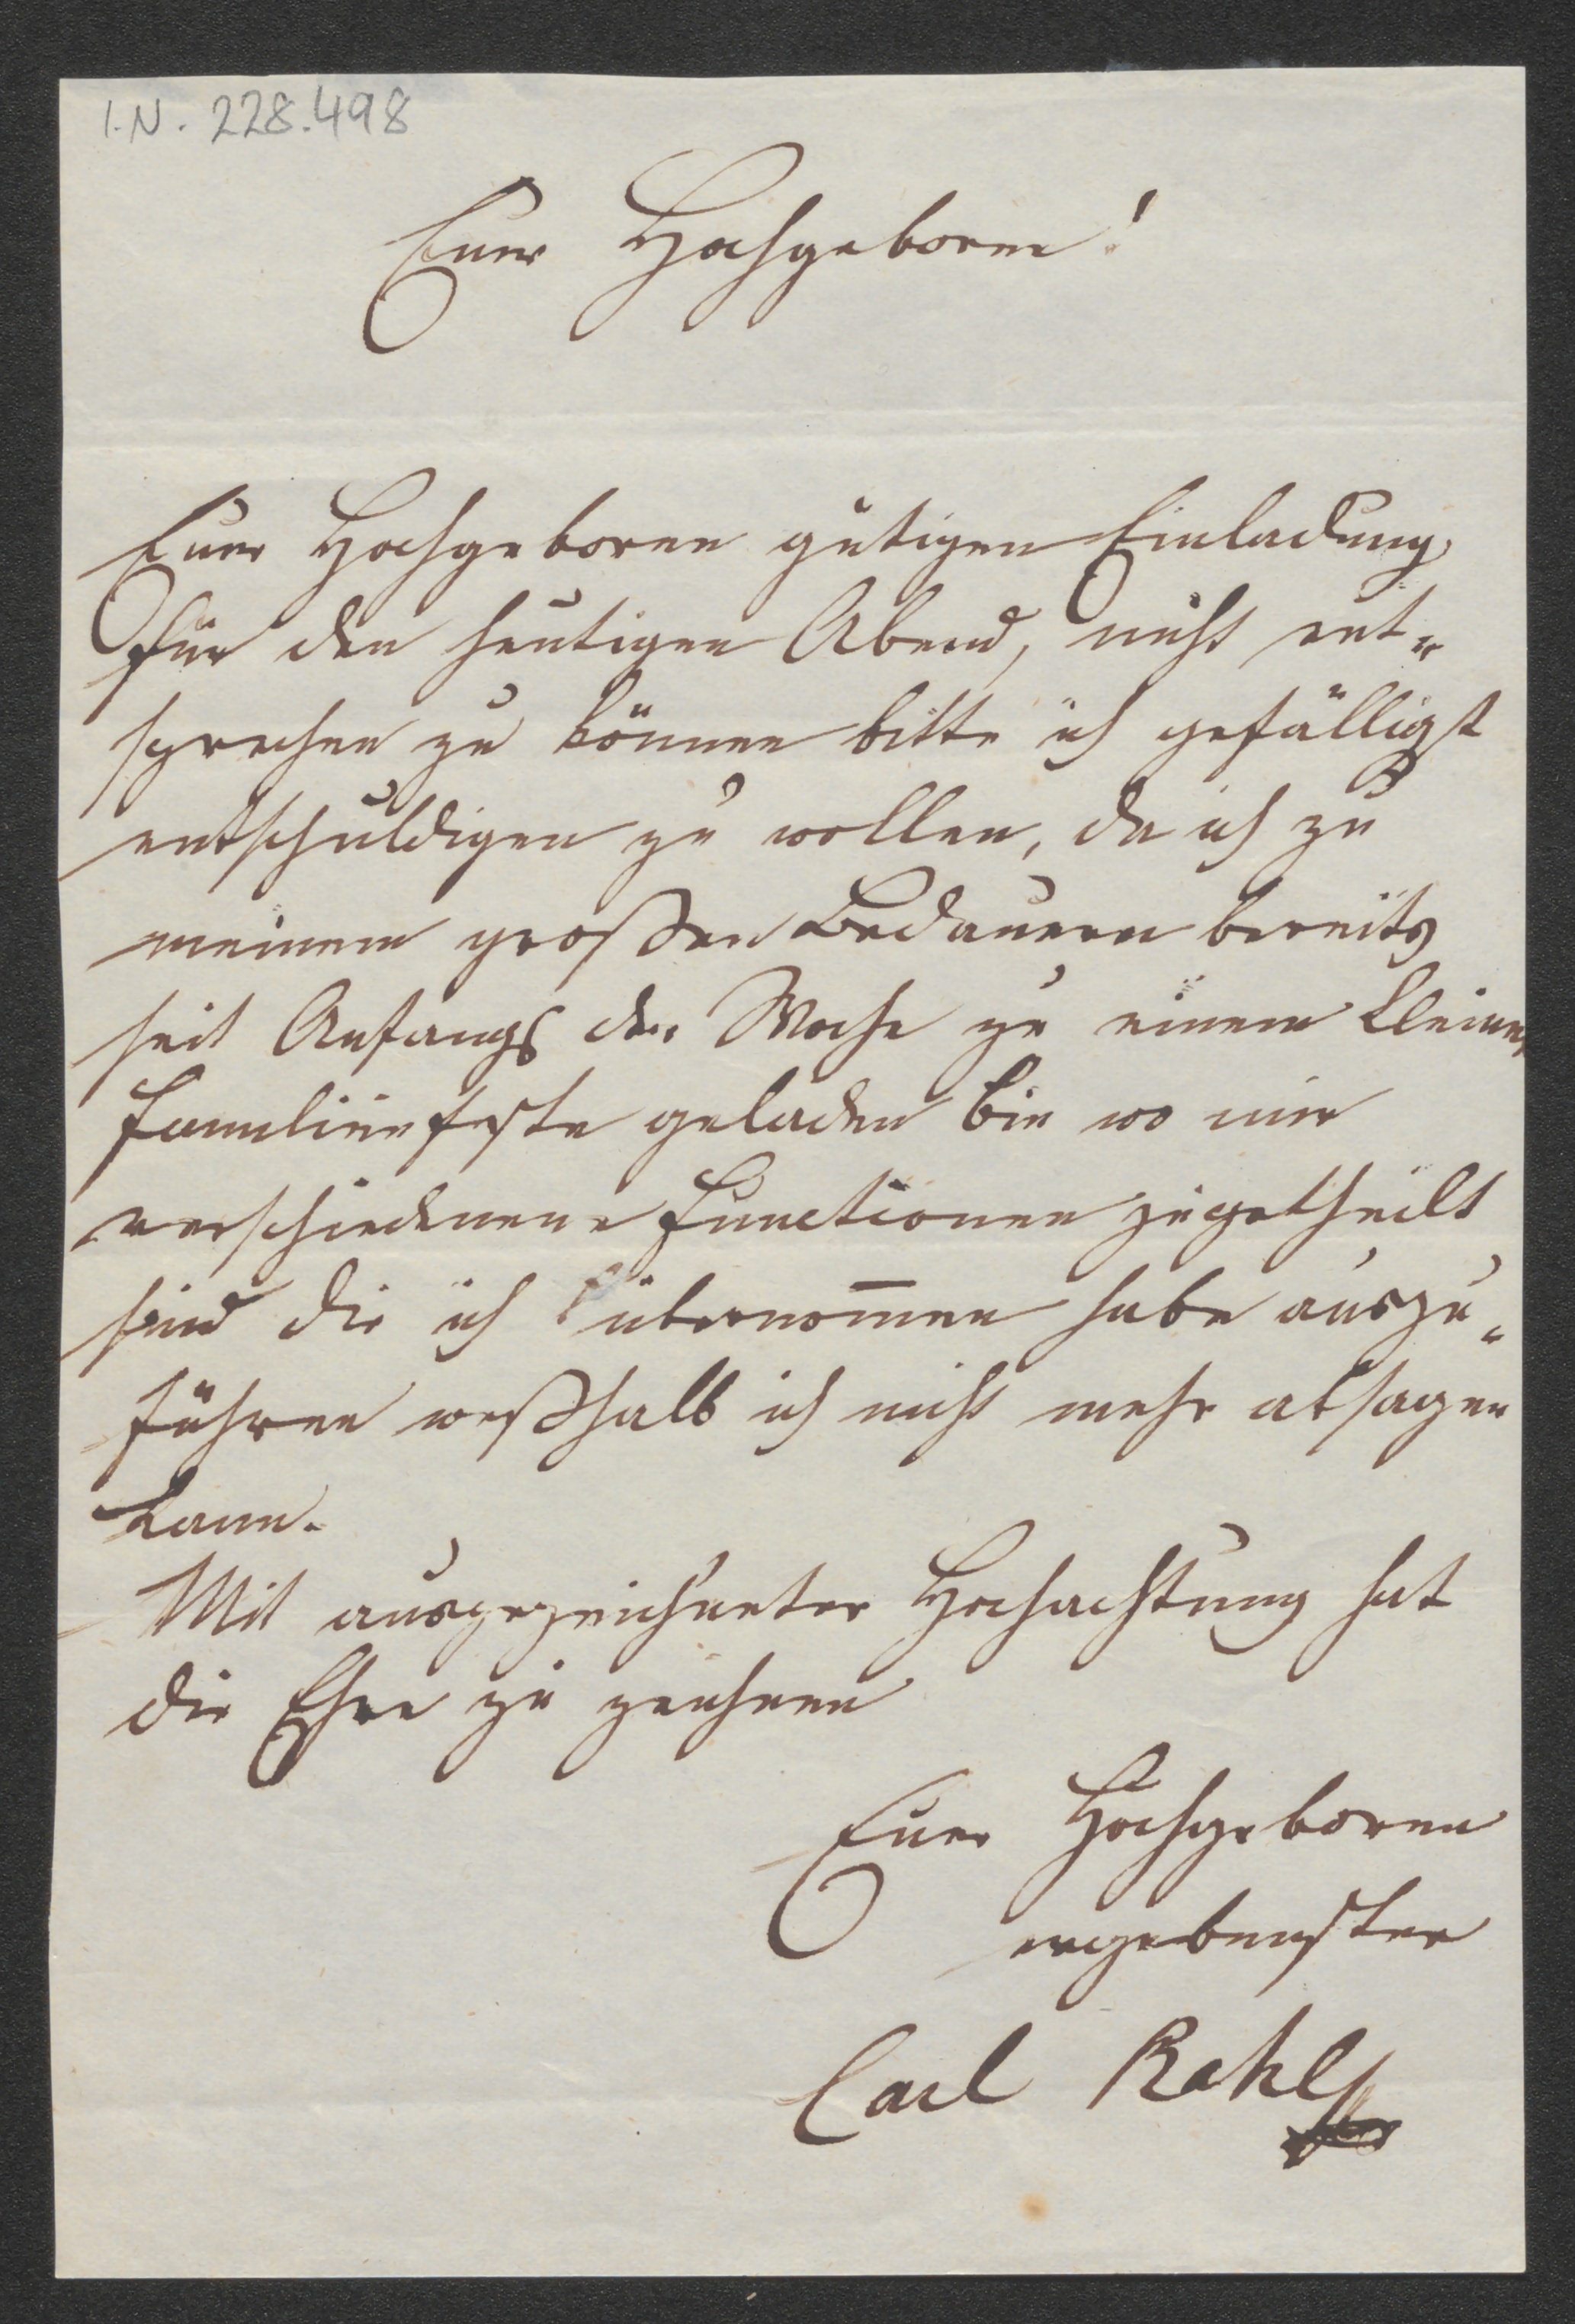 I.N. 228.498
Euer Hochgeboren!
Euer Hochgeboren gütigen Einladung
für den heutigen Abend, nicht ent-
sprechen zu können bitte ich gefälligst
entschuldigen zu wollen, da ich zu
meinem großen Bedauern bereits
seit Anfangs der Woche zu einem kleinen
Familienfeste geladen bin wo mir
verschiedene Functionen zugetheilt
sind die ich übernom̄en habe auszu-
führen weßhalb ich nicht mehr absagen
kann.
Mit ausgezeichneter Hochachtung hat
die Ehre zu zeichnen
Euer Hochgeboren
ergebenster
Carl Rahl